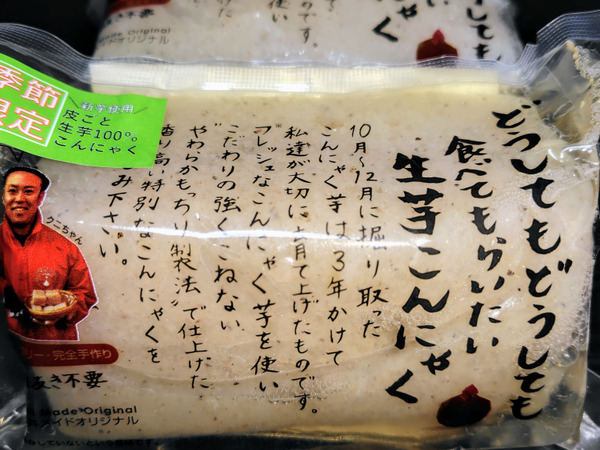 どうしてもどうしても
食べてもらいたい
生芋こんにゃく
10月〜12月に掘り取った
こんにゃく芋は3年かけて
私達が大切に育て上げたものです。
フレッシュなこんにゃく芋を使い
こだわりの強くこねない
"やわらかもっちり製法"で仕上げた
香り高い特別なこんにゃくを
み下さい。
季節
限定
新芋使用
皮ごと
生芋100%
こんにゃく
くーちゃん
リー・完全手作り
抜き不要
made Original
メイドオリジナル
していないという意味です。
どうしても
食べてもらいたい
生芋こんにゃく
made Original
メイドオリジナル